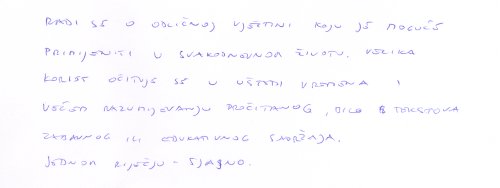 RADI SE O ODLIČNOJ VJEŠTINI KOJU JE MOGUĆE
PRIMIJENITI U SVAKODNEVNOM ŽIVOTU. VELIKA
KORIST OČITUJE SE U UŠTEDI VREMENA I
VEĆEM RAZUMIJEVANJU PROČITANOG, BILO TEKSTOVA
ZABAVNOG ILI EDUKATIVNOG SADRŽAJA.
JEDNOM RIJEČJU - SJAJNO.